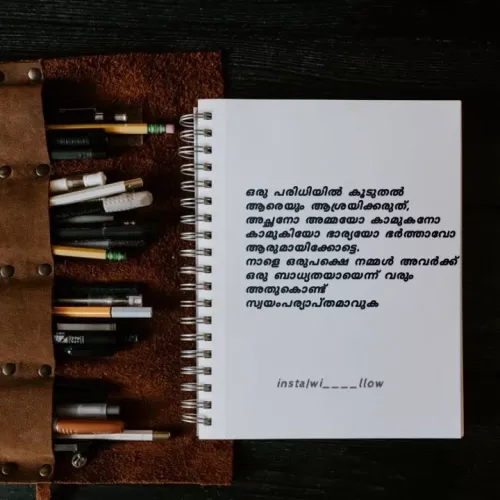 ഒരു പരിധിയിൽ കൂടുതൽ
ആരെയും ആശ്രയിക്കരുത്,
അച്ഛനോ അമ്മയോ കാമുകനോ
കാമുകിയോ ഭാര്യയോ ഭർത്താവോ
ആരുമായിക്കോട്ടെ.
നാളെ ഒരുപക്ഷെ നമ്മൾ അവർക്ക്
ഒരു ബാധ്യതയായെന്ന് വരും
അതുകൊണ്ട്
സ്വയംപര്യാപ്തമാവുക
insta/wi____llow